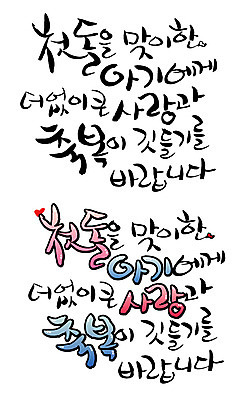 첫돌을 맞이한
아기에게
더없이 큰 사랑과
축복이 깃들기를
바랍니다
첫돌을 맞이한
아기에게
더없이 큰 사랑과
축복이 깃들기를
바랍니다